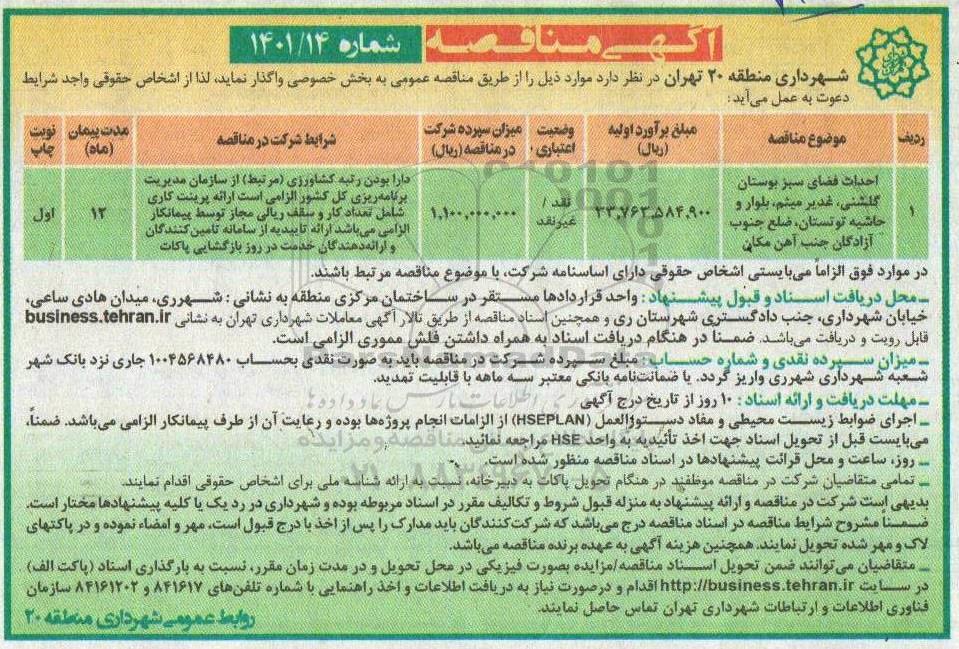 آگهی مناقصه
شماره ۱۴۰۱/۱۴
شهرداری منطقه ۲۰ تهران در نظر دارد موارد ذیل را از طریق مناقصه عمومی به بخش خصوصی واگذار نماید، لذا از اشخاص حقوقی واجد شرایط
دعوت به عمل می‌آید:
ردیف
موضوع مناقصه
مبلغ برآورد اولیه
(ریال)
وضعیت
اعتباری
میزان سپرده شرکت
در مناقصه (ریال)
شرایط شرکت در مناقصه
مدت پیمان
(ماه)
نوبت
چاپ
۱
احداث فضای سبز بوستان
گلشنی، غدیر میثم، بلوار و
حاشیه توتستان، ضلع جنوب
آزادگان جنب آهن مکان
۲۳,۷۶۳,۵۸۴,۹۰۰
نقد /
غیرنقد
۱,۱۰۰,۰۰۰,۰۰۰
دارا بودن رتبه کشاورزی (مرتبط) از سازمان مدیریت
برنامه‌ریزی کل کشور الزامی است ارائه پرینت کاری
شامل تعداد کار و سقف ریالی مجاز توسط پیمانکار
الزامی می‌باشد ارائه تاییدیه از سامانه تامین‌کنندگان
و ارائه‌دهندگان خدمت در روز بازگشایی پاکات
۱۲
اول
در موارد فوق الزاماً می‌بایستی اشخاص حقوقی دارای اساسنامه شرکت، با موضوع مناقصه مرتبط باشند.
ـ محل دریافت اسناد و قبول پیشنهاد : واحد قراردادها مستقر در ساختمان مرکزی منطقه به نشانی : شهرری، میدان هادی ساعی،
خیابان شهرداری، جنب دادگستری شهرستان ری و همچنین اسناد مناقصه از طریق تالار آگهی معاملات شهرداری تهران به نشانی business.tehran.ir
قابل رویت و دریافت می‌باشد. ضمناً در هنگام دریافت اسناد به همراه داشتن فلش مموری الزامی است.
ـ میزان سپرده نقدی و شماره حساب : مبلغ سپرده شرکت در مناقصه باید به صورت نقدی بحساب ۱۰۰۴۵۶۸۴۸۰ جاری نزد بانک شهر
شعبه شهرداری شهرری واریز گردد. یا ضمانت‌نامه بانکی معتبر سه ماهه با قابلیت تمدید.
ـ مهلت دریافت و ارائه اسناد : ۱۰ روز از تاریخ درج آگهی
ـ اجرای ضوابط زیست محیطی و مفاد دستورالعمل (HSEPLAN) از الزامات انجام پروژه‌ها بوده و رعایت آن از طرف پیمانکار الزامی می‌باشد. ضمناً،
می‌بایست قبل از تحویل اسناد جهت اخذ تأئیدیه به واحد HSE مراجعه نمائید.
ـ روز، ساعت و محل قرائت پیشنهادها در اسناد مناقصه منظور شده است.
ـ تمامی متقاضیان شرکت در مناقصه موظفند در هنگام تحویل پاکات به دبیرخانه، نسبت به ارائه شناسه ملی برای اشخاص حقوقی اقدام نمایند.
بدیهی است شرکت در مناقصه و ارائه پیشنهاد به منزله قبول شروط و تکالیف مقرر در اسناد مربوطه بوده و شهرداری در رد یک یا کلیه پیشنهادها مختار است.
ضمنا مشروح شرایط مناقصه در اسناد مناقصه درج می‌باشد که شرکت‌کنندگان باید مدارک را پس از اخذ با درج قبول است، مهر و امضاء نموده و در پاکتهای
لاک و مهر شده تحویل نمایند. همچنین هزینه آگهی به عهده برنده مناقصه می‌باشد.
ـ متقاضیان می‌توانند ضمن تحویل اسناد مناقصه/مزایده بصورت فیزیکی در محل تحویل و در مدت زمان مقرر، نسبت به بارگذاری اسناد (پاکت الف)
در سایت http://business.tehran.ir اقدام و درصورت نیاز به دریافت اطلاعات و اخذ راهنمایی با شماره تلفن‌های ۸۴۱۶۱۷ و ۸۴۱۶۱۲۰۲ سازمان
فناوری اطلاعات و ارتباطات شهرداری تهران تماس حاصل نمایند.
روابط عمومی شهرداری منطقه ۲۰